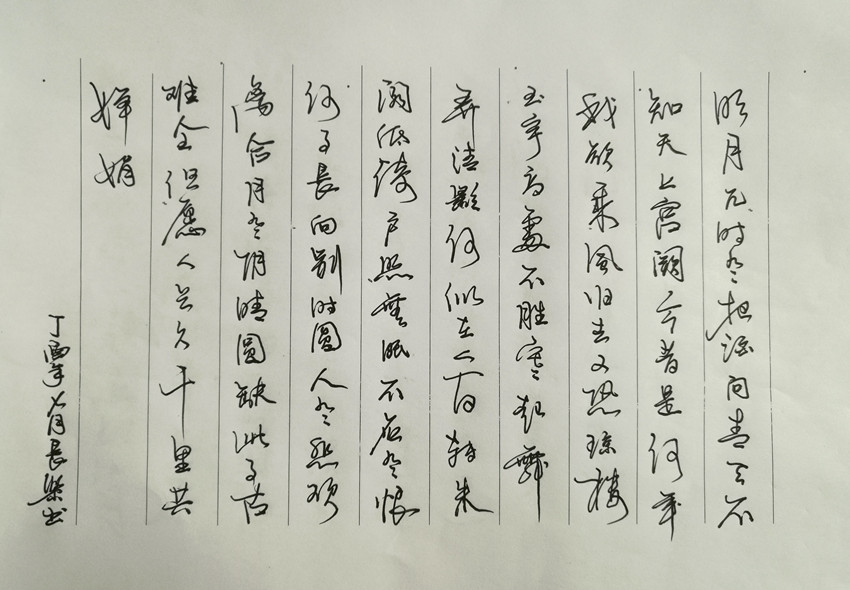 明月几时有把酒问青天不
知天上宫阙今昔是何年
我欲乘風归去又恐琼楼
玉宇高處不胜寒起舞
弄清影何似在人间转朱
阁低绮户照無眠不应有恨
何事長向别时圓人有悲欢
离合月有阴晴圓缺此事古
难全但愿人长久千里共
婵娟
丁酉年七月長樂书